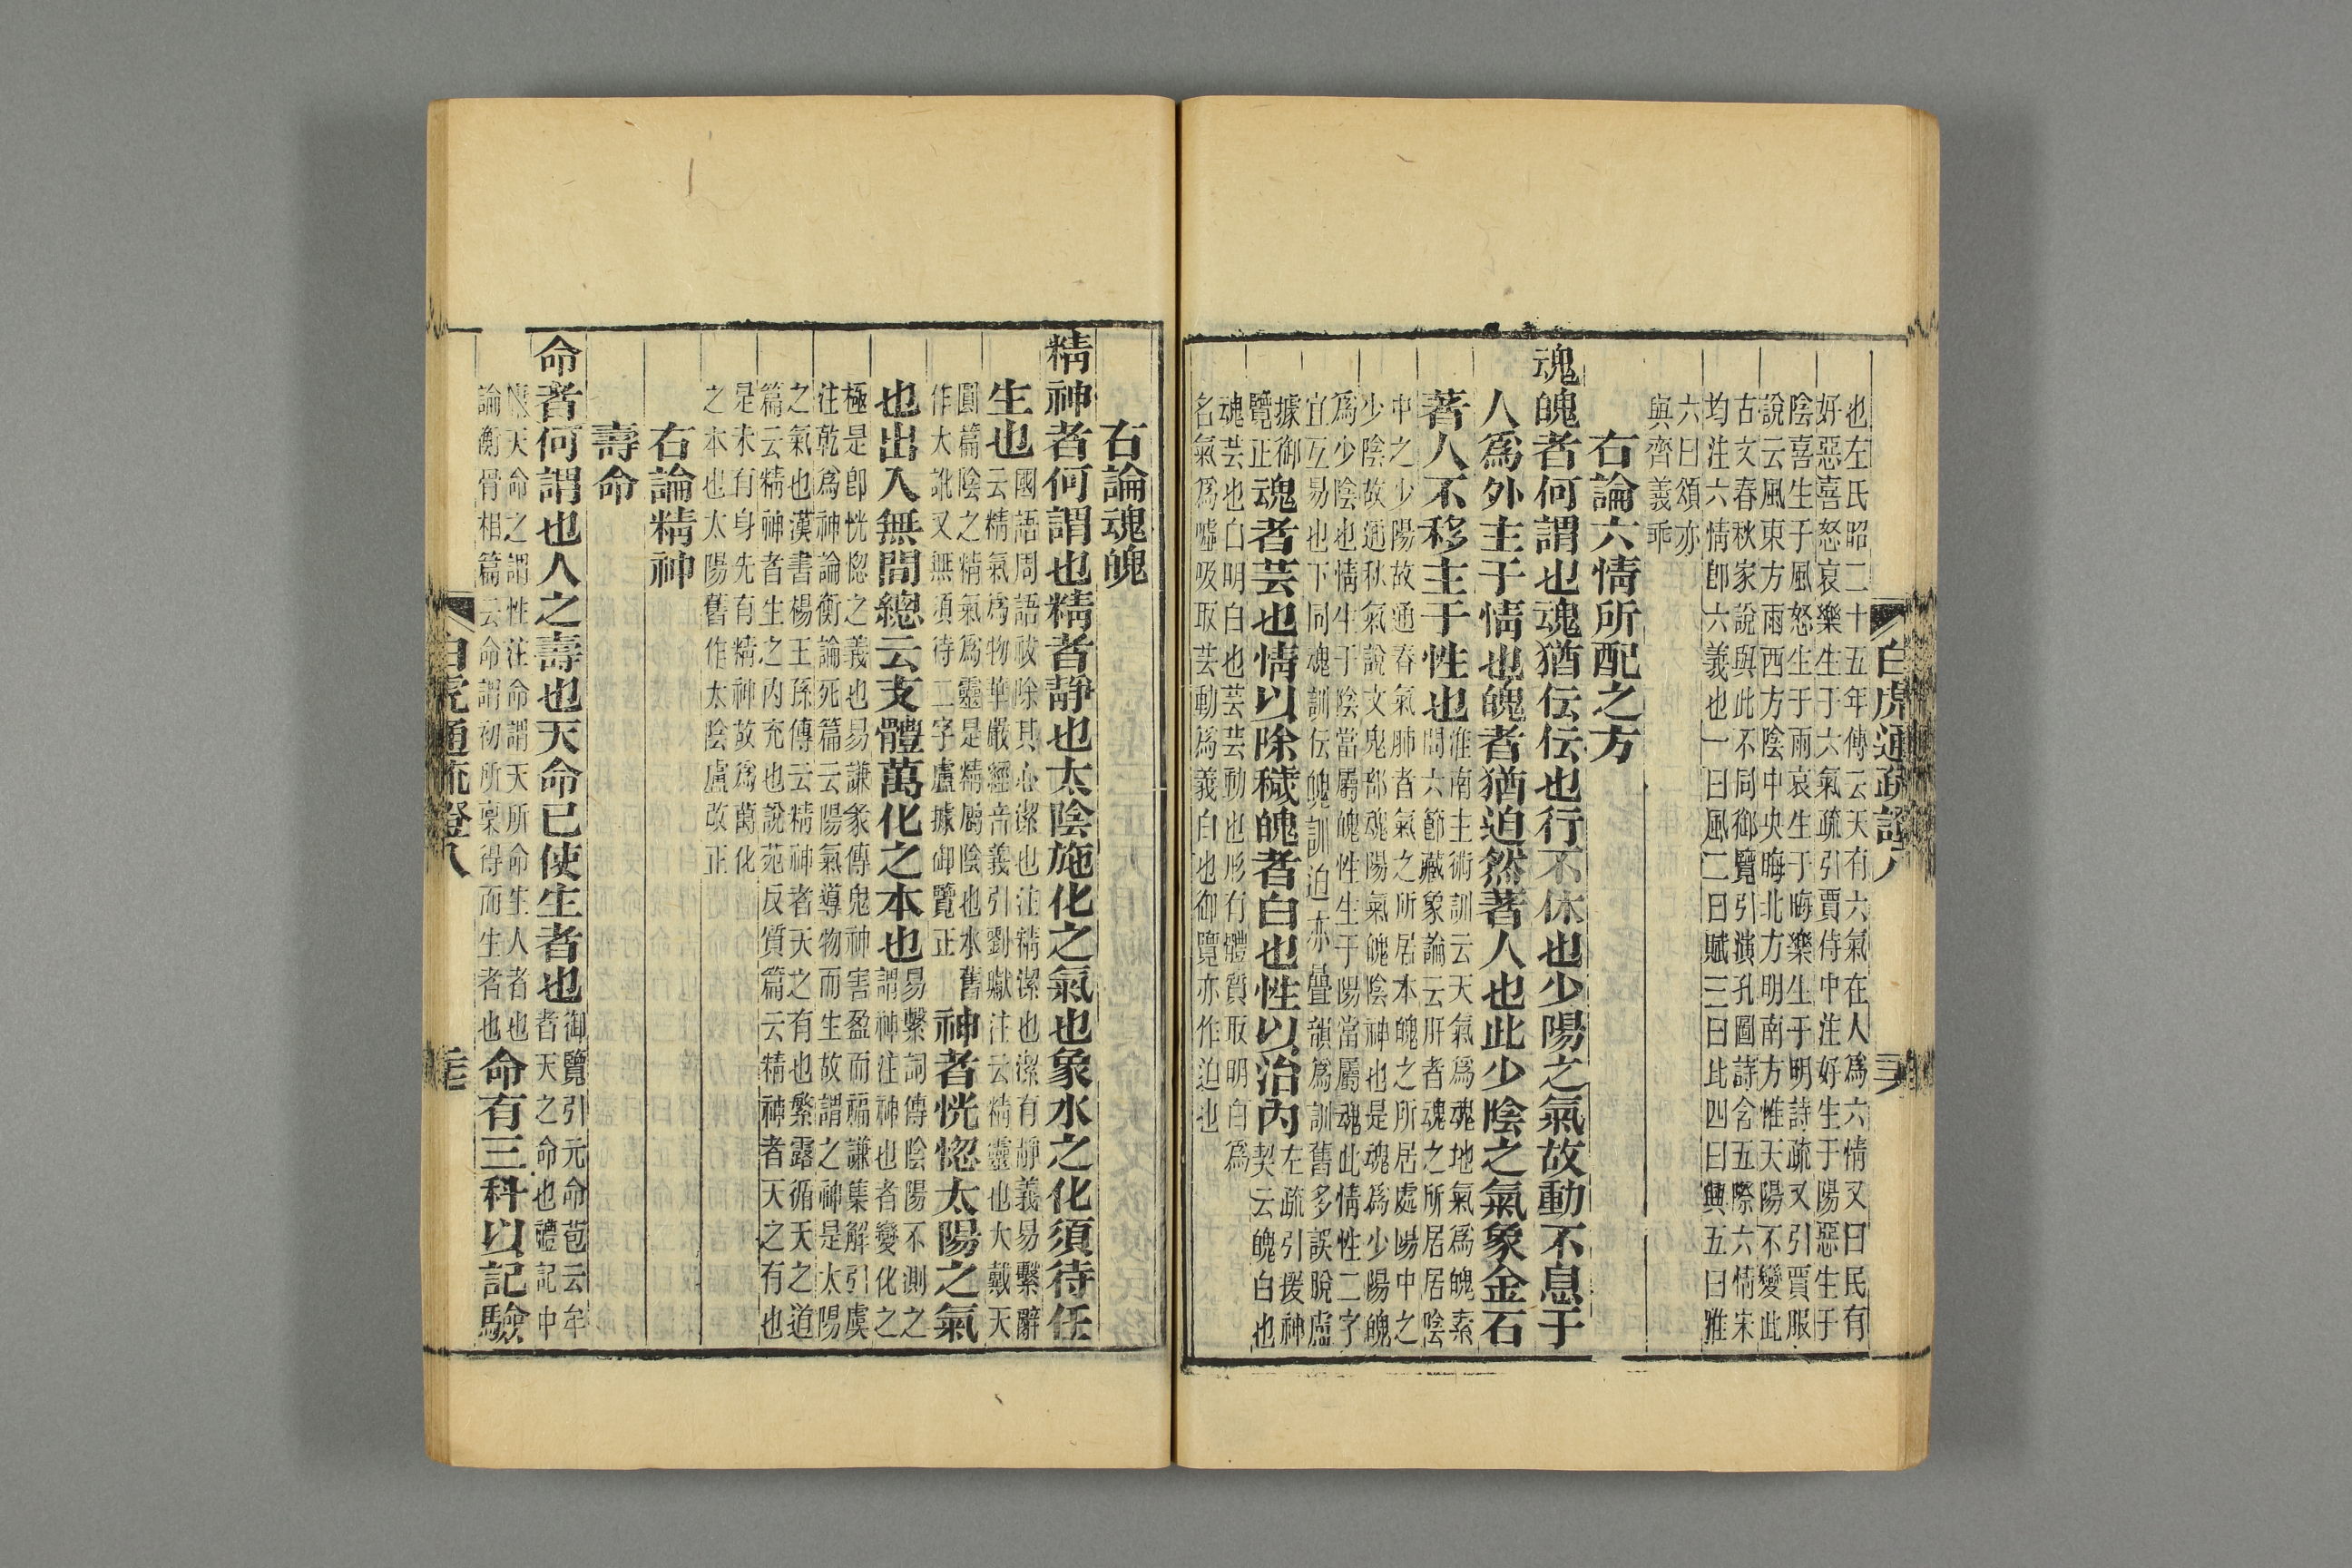 也左氏昭二十五年傳云天有六氣在人爲六情又曰民有
好惡喜怒哀樂生于六氣疏引賈侍中注好生于陽惡生于
陰喜生于風怒生于雨哀生于晦樂生于明詩疏又引賈服
說云風東方雨西方陰中央晦北方明南方惟天陽不變此
古文春秋家說與此不同御覽引演孔圖詩含五際六情宋
均注六情卽六義也一曰風二曰賦三曰比四曰興五曰雅
六曰頌亦
與齊義乖
右論六情所配之方
魂魄者何謂也魂猶伝伝也行不休也少陽之氣故動不息于
人爲外主于情也魄者猶迫然著人也此少陰之氣象金石
著人不移主于性也
淮南主術訓云天氣爲魂地氣爲魄素
問六節藏象論云肝者魂之所居居陰
中之少陽故通春氣肺者氣之所居本魄之所居處陽中之
少陰故通秋氣說文鬼部魂陽氣魄陰神也是魂爲少陽魄
爲少陰也情生于陰當屬魄性生于陽當屬魂此情性二字
宜互易也下同魂訓伝魄訓迫亦疊韻爲訓舊多誤脫盧
據御
覽正
魂者芸也情以除穢魄者白也性以治內
左疏引援神
契云魄白也
魂芸也白明白也芸芸動也形有體質取明白爲
名氣爲噓吸取芸動爲義白也御覽亦作迫也
白虎通疏證八
右論魂魄
精神者何謂也精者靜也太陰施化之氣也象水之化須待任
生也
國語周語祓除其心潔也注精潔也潔有靜義易繫辭
云精氣爲物華嚴經音義引劉瓛注云精靈也大戴天
圓篇陰之精氣爲靈是精屬陰也水舊
作大訛又無須待二字盧據御覽正
神者恍惚太陽之氣
也出入無間總云支體萬化之本也
易繫詞傳陰陽不測之
謂神注神也者變化之
極是卽恍惚之義也易謙彖傳鬼神害盈而福謙集解引虞
注乾爲神論衡論死篇云陽氣導物而生故謂之神是太陽
之氣也漢書楊王孫傳云精神者天之有也繁露循天之道
篇云精神者生之內充也說苑反質篇云精神者天之有也
是未有身先有精神故爲萬化
之本也太陽舊作太陰盧改正
右論精神
壽命
命者何謂也人之壽也天命已使生者也
御覽引元命苞云牟
者天之命也禮記中
庸天命之謂性注命謂天所命生人者也
論衡骨相篇云命謂初所稟得而生者也
命有三科以記驗
白虎通疏證八